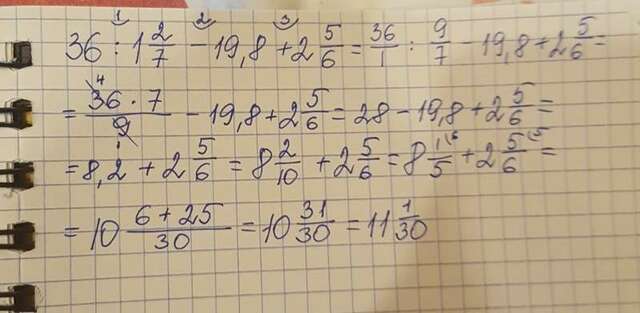 1 2 3
36 : 1 2/7 - 19,8 + 2 5/6 = 36/1 : 9/7 - 19,8 + 2 5/6 =
= 36 · 7/9 - 19,8 + 2 5/6 = 28 - 19,8 + 2 5/6 =
= 8,2 + 2 5/6 = 8 2/10 + 2 5/6 = 8 1/5 + 2 5/6 =
= 10 6 + 25/30 = 10 31/30 = 11 1/30